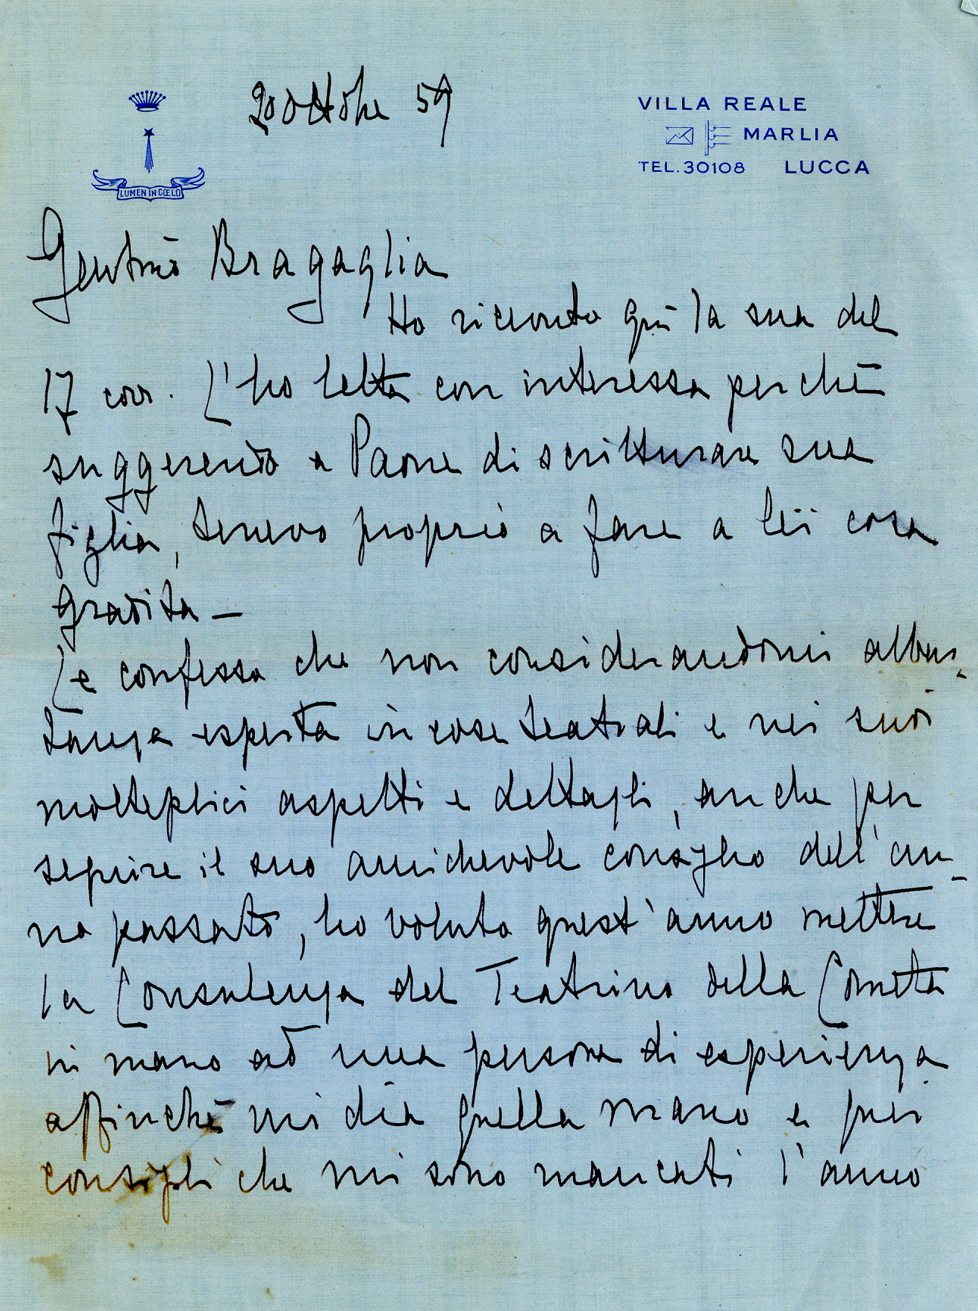 20 Ottobre 59
LUMEN IN CŒLO
VILLA REALE
MARLIA
TEL. 30108 LUCCA
Gentmo Bragaglia
Ho ricevuto qui la sua del
17 corr. L'ho letta con interesse perchè
suggerendo a Paone di scritturare sua
figlia, tenevo proprio a fare a lei cosa
gradita —
Le confesso che non considerandomi abbas-
tanza esperta in cose teatrali e nei suoi
molteplici aspetti e dettagli, anche per
seguire il suo amichevole consiglio dell'an-
no passato, ho voluto quest'anno mettere
la Consulenza del Teatrino della Cometa
in mano ad una persona di esperienza
affinchè mi dia quella mano e quei
consigli che mi sono mancati l'anno